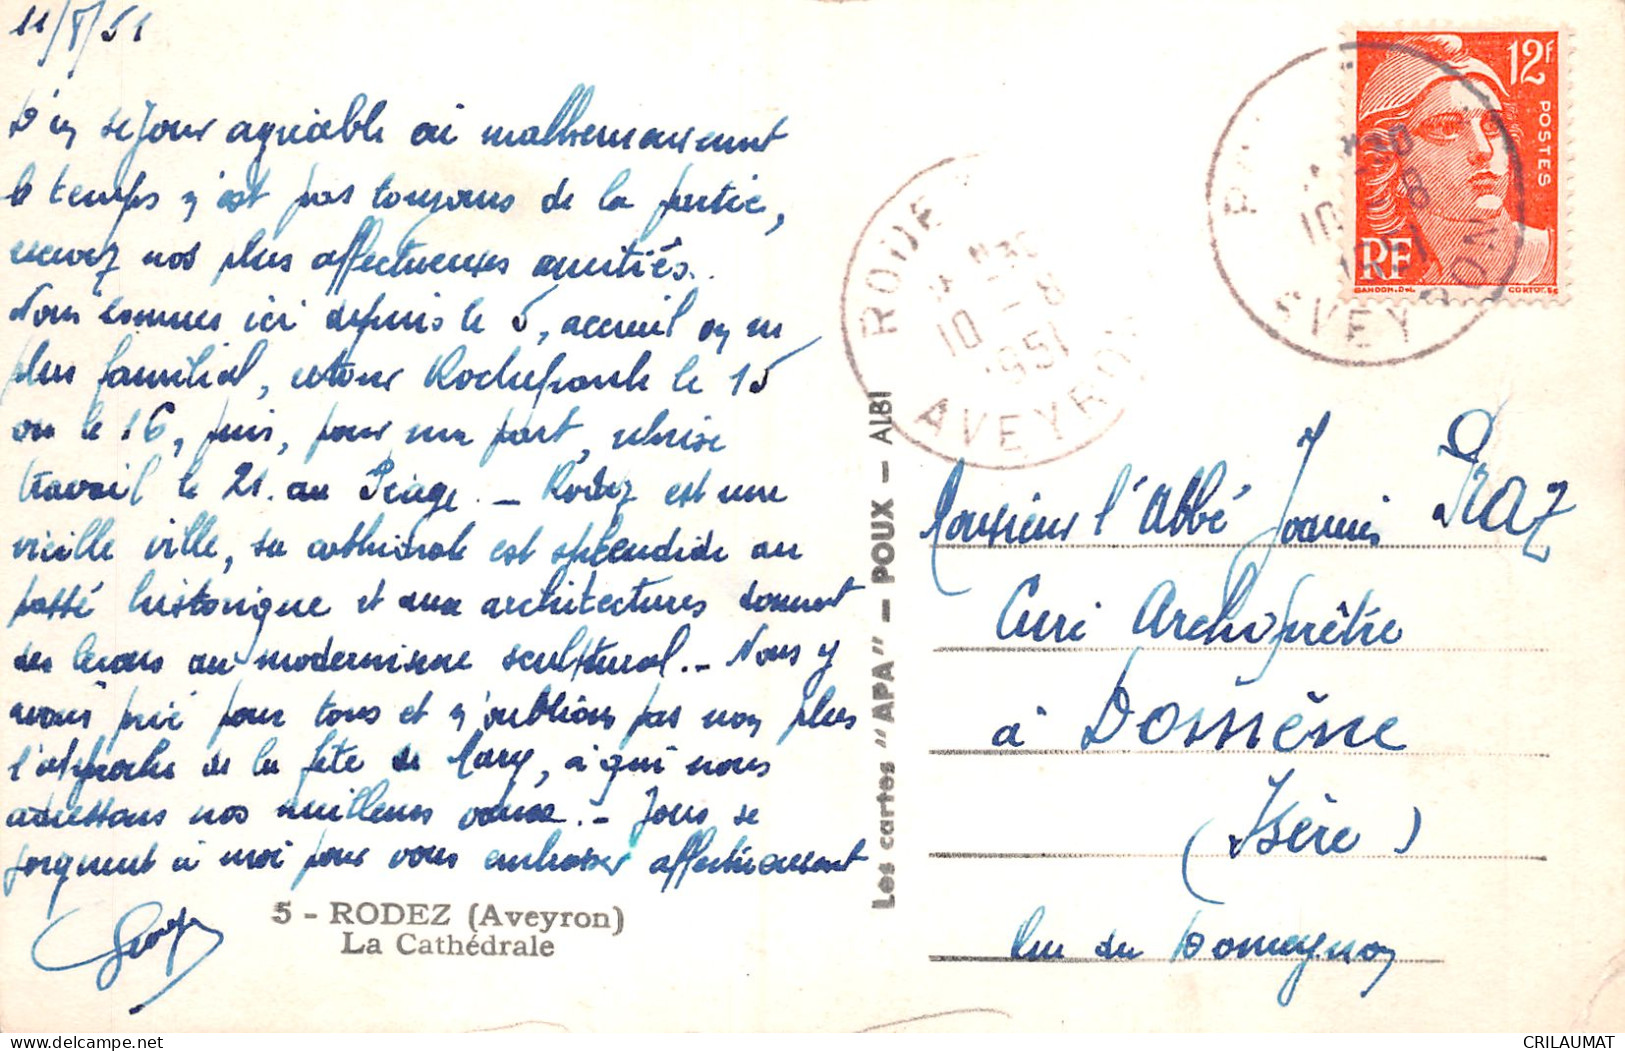 11/8/51
D'un séjour agréable où malheureusement
le temps n'est pas toujours de la partie,
recevez nos plus affectueuses amitiés.
Nous sommes ici depuis le 5, accueil on ne
plus familial, retour Rochefourte le 15
ou le 16, puis, pour ma part, reprise
travail le 21. au Péage. - Rodez est une
vieille ville, sa cathédrale est splendide au
passé historique et aux architectures donnant
des leçons au modernisme sculptural. - Nous y
avons prié pour tous et n'oublions pas non plus
l'approche de la fête de Mary, à qui nous
adressons nos meilleurs vœux. - Tous se
joignent à moi pour vous embrasser affectueusement
5 - RODEZ (Aveyron)
La Cathédrale
Les cartes "APA" - POUX - ALBI
RODEZ
10 - 8
1951
AVEYRON
12F
POSTES
RF
GANDON. DEL.
CORTOT. SC
10 - 8
1951
AVEYRON
Monsieur l'Abbé Joannis PRAZ
Curé Archiprêtre
à Domène
(Isère)
Rue du Domeynon
CRILAUMAT